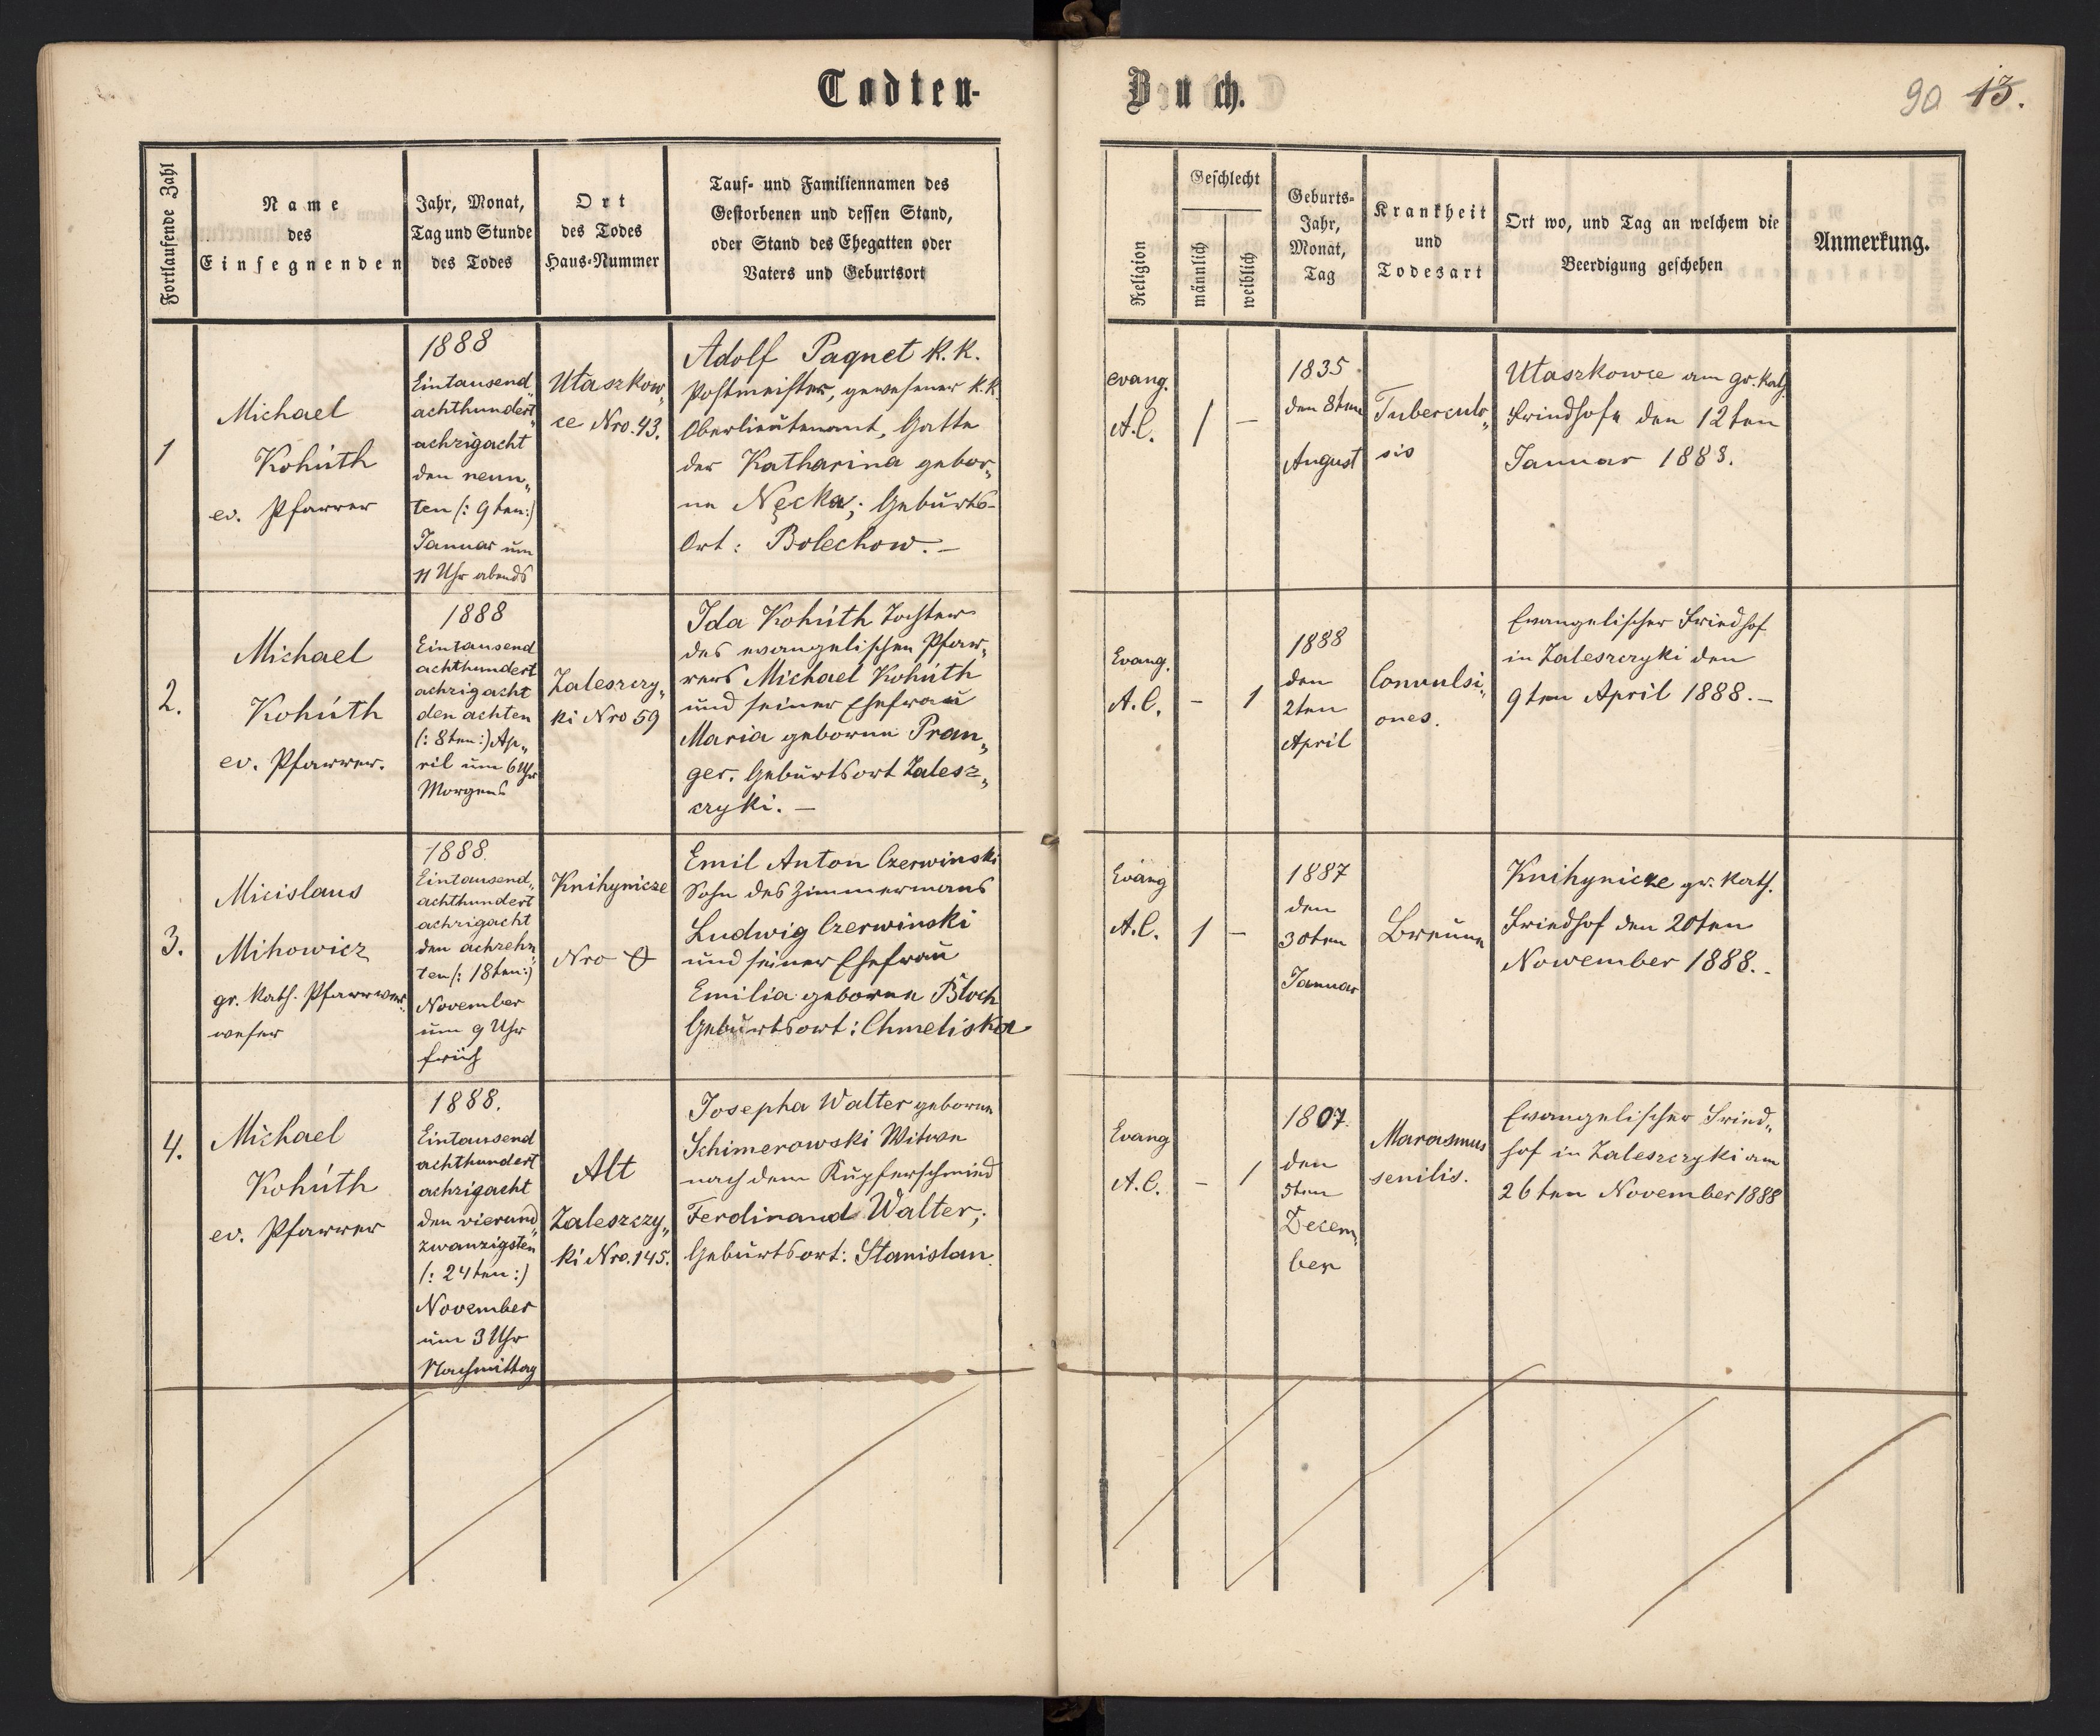 Todten-
Buch.
90 13.
Fortlaufende Zahl
Name
des
Einsegnenden
Jahr, Monat,
Tag und Stunde
des Todes
Ort
des Todes
Haus-Nummer
Tauf- und Familiennamen des
Gestorbenen und dessen Stand,
oder Stand des Ehegatten oder
Vaters und Geburtsort
Religion
Geschlecht
männlich
weiblich
Geburts-
Jahr,
Monat,
Tag
Krankheit
und
Todesart
Ort wo, und Tag an welchem die
Beerdigung geschehen
Anmerkung.
1
Michael
Kohúth
ev. Pfarrer
1888
Eintausend
achthundert
achzigacht
den neun„
ten (: 9ten:)
Januar um
11 Uhr abends
Utaszkow„
ce Nro. 43.
Adolf Pagnet k. k.
Postmeister, gewesener k. k.
Oberlieutenant, Gatte
der Katharina gebor„
ne Nęcka; Geburts-
Ort: Bolechow. –
evang.
A.C.
1
–
1835
den 8ten
August
Tuberculo„
sis
Utaszkowce am gr. kath.
Friedhofe den 12ten
Januar 1888.
2.
Michael
Kohúth
ev. Pfarrer.
1888
Eintausend
achthundert
achzigacht
den achten
(: 8ten:) Ap„
ril um 6 Uhr
Morgens
Zaleszczy„
ki Nro 59
Ida Kohúth Tochter
des evangelischen Pfar„
rers Michael Kohúth
und seiner Ehefrau
Maria geborne Pran„
ger. Geburtsort Zalesz„
czyki. –
Evang.
A.C.
–
1
1888
den
2ten
April
Convulsi„
ones.
Evangelischer Friedhof
in Zaleszczyki den
9ten April 1888. –
3.
Micislaus
Mihowicz
gr. kath. Pfarrver„
weser
1888.
Eintausend„
achthundert
achzigacht
den achzehn„
ten (: 18ten:)
November
um 9 Uhr
früh
Knihynicze
Nro
Emil Anton Czerwinski
Sohn des Zimmermans
Ludwig Czerwinski
und seiner Ehefrau
Emilia geborne Bloch
Geburtsort: Chmeliska
Evang
A.C.
1
–
1887
den
30ten
Januar
Breune
Knihynicze gr. kath.
Friedhof den 20ten
November 1888. -
4.
Michael
Kohúth
ev. Pfarrer
1888.
Eintausend
achthundert
achzigacht
den vierund„
zwanzigsten
(: 24ten :)
November
um 3 Uhr
Nachmittag
Alt
Zaleszczy„
ki Nro. 145.
Josepha Walter geborne
Schimerowski Witwe
nach dem Kupferschmied
Ferdinand Walter;
Geburtsort: Stanislau.
Evang
A.C.
–
1
1807.
den
5ten
Decem„
ber
Marasmus
senilis.
Evangelischer Fried„
hof in Zaleszczyki am
26ten November 1888